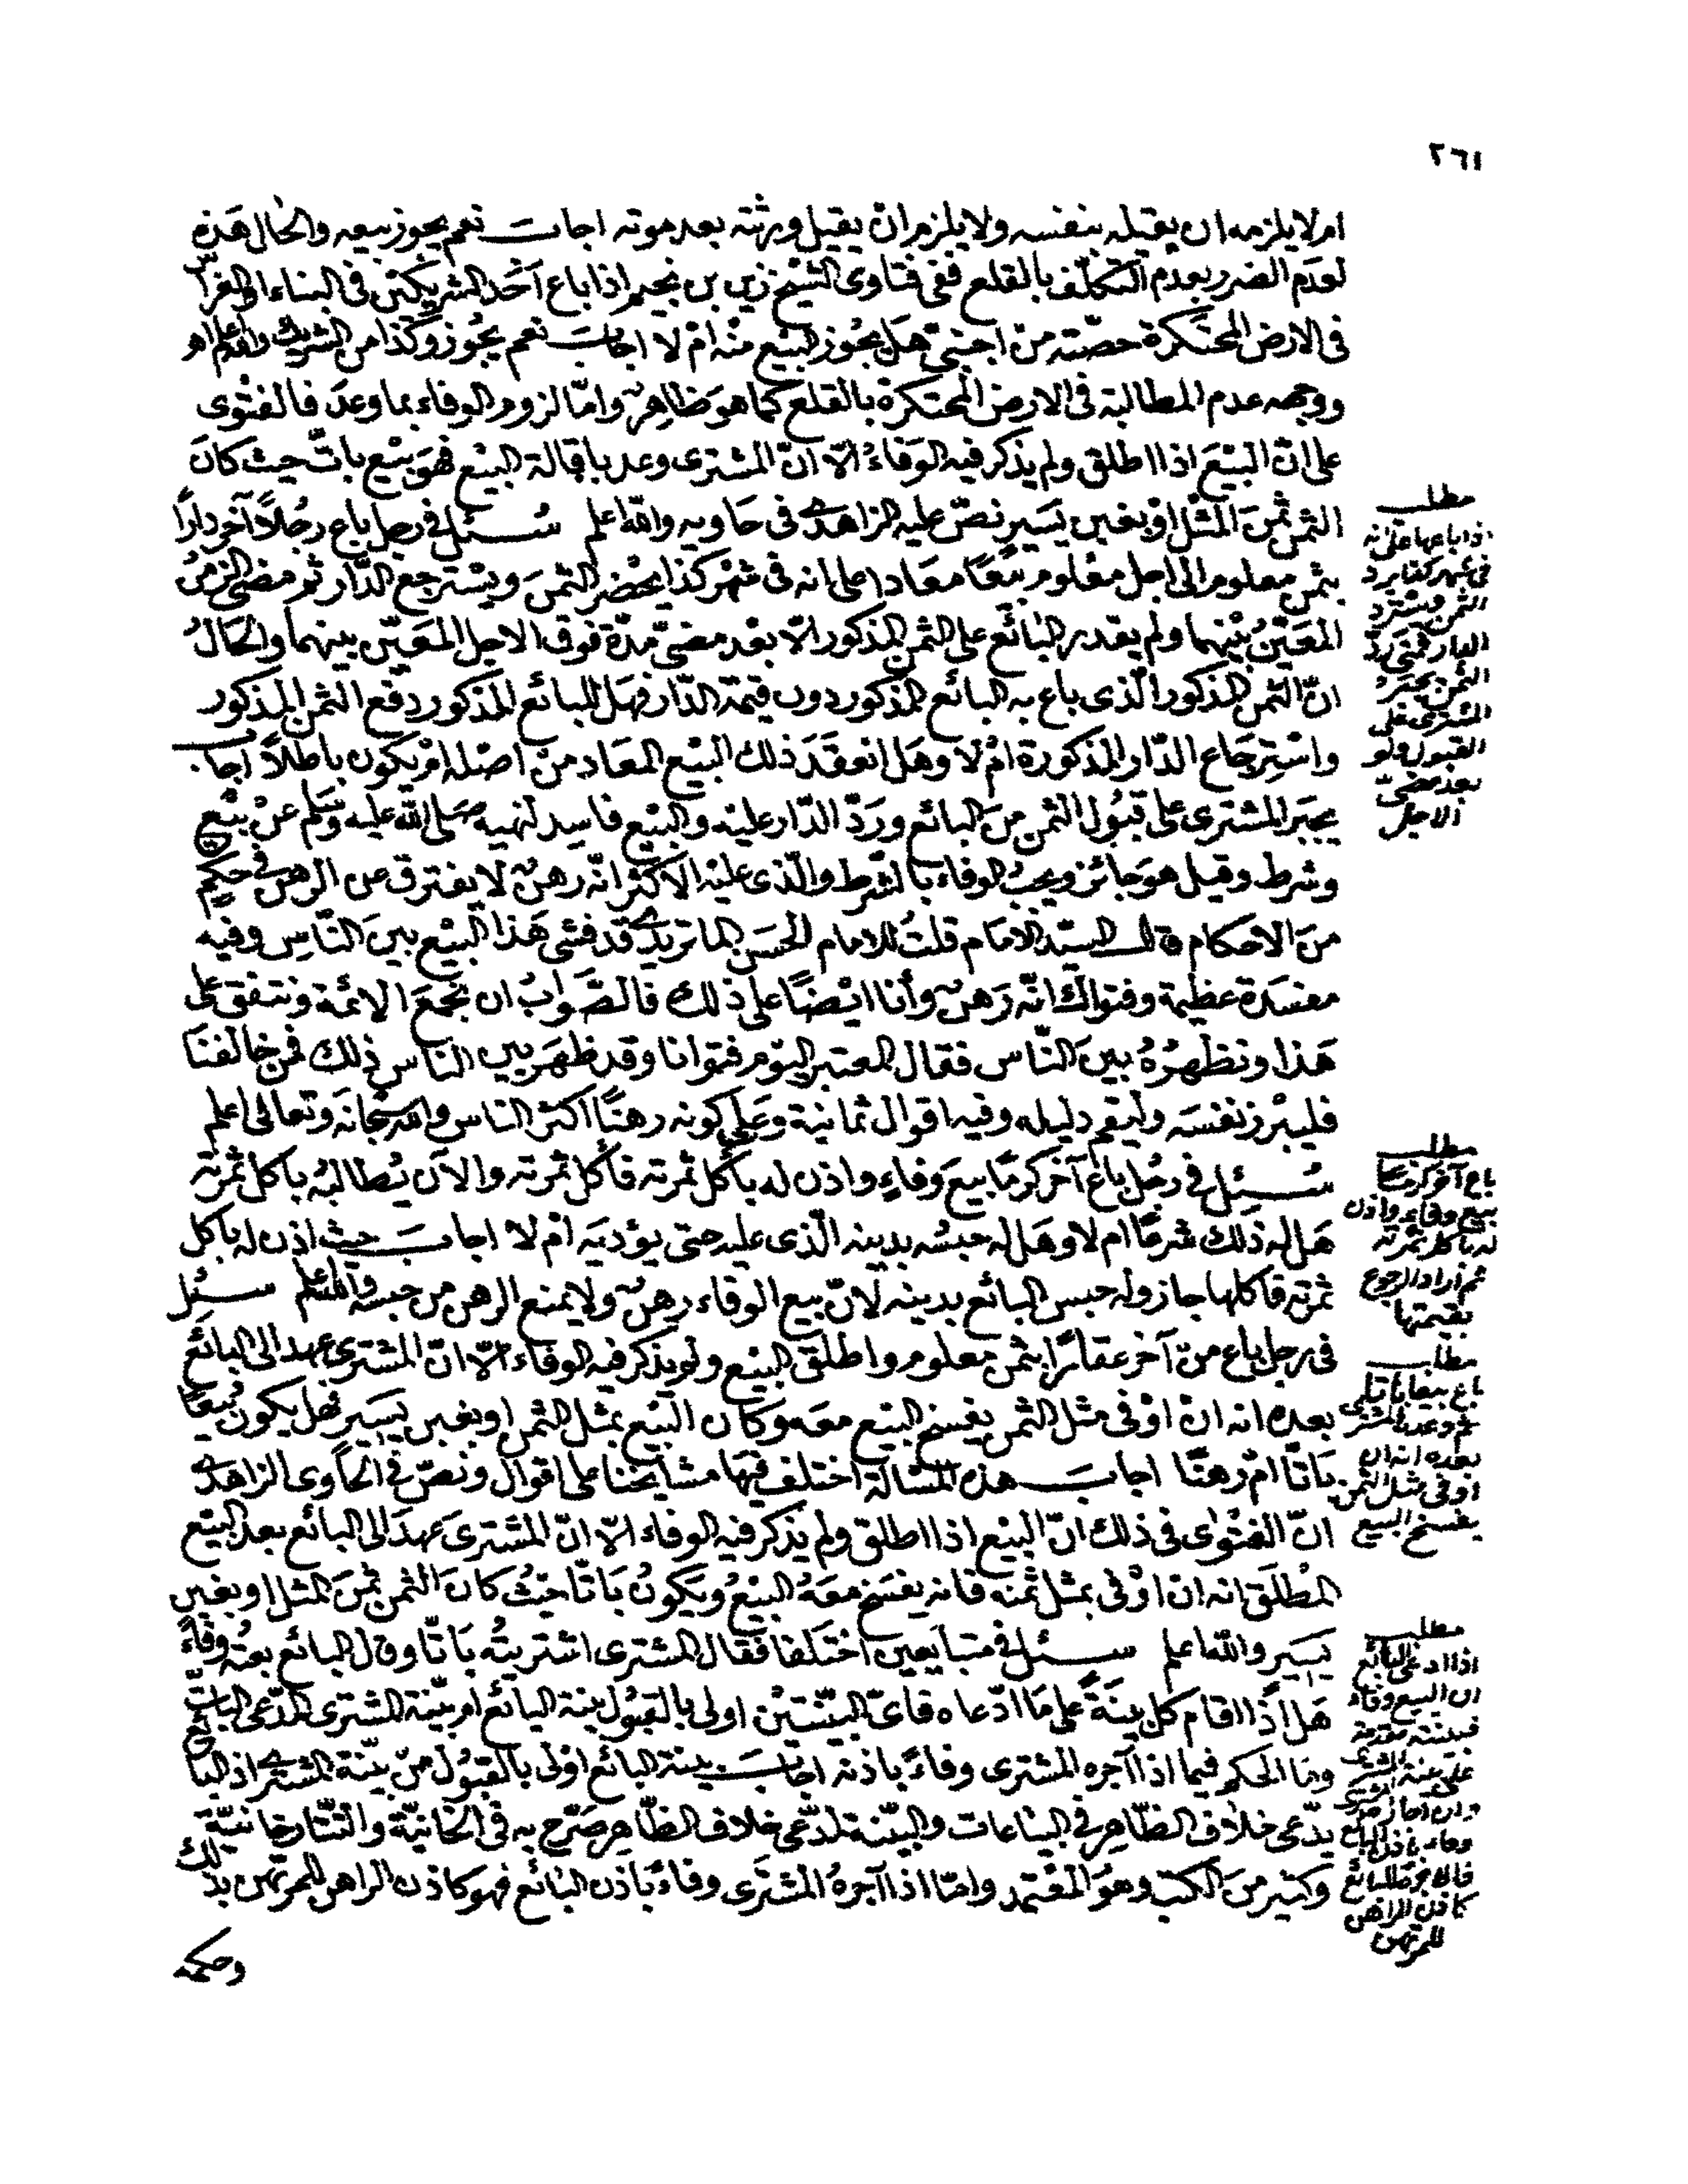 ٢٦١
ام لا يلزمه ان يقيله بنفسه ولا يلزم ان يقيل ورثته بعد موته اجاب نعم يجوز بيعه والحال هذه
لعدم الضرر بعدم التكلّف بالقلع ففي فتاوى الشيخ زين بن نجيم اذا باع احد الشريكين فى البناء او الغراس
فى الارض المحتكرة حصّته من اجنبيّ هل يجوز البيع منه ام لا اجاب نعم يجوز وكذا من الشريك والله اعلم اهـ
ووجهه عدم المطالبة فى الارض المحتكرة بالقلع كما هو ظاهر وامّا لزوم الوفاء بما وعد فالفتوى
على انّ البيع اذا اطلق ولم يذكر فيه الوفاء الّا انّ المشترى وعد باقالة البيع فهو بيع باتّ حيث كان
الثمن ثمن المثل او بغبن يسير نصّ عليه الزاهدى فى حاويه والله اعلم سئل فى رجل باع رجلاً آخر داراً
بثمن معلوم الى اجل معلوم بيعًا معادا على انه فى شهر كذا يحضر الثمن ويسترجع الدّار ثم مضى الزمن
المعيّن بينهما ولم يقدر البائع على الثمن المذكور الّا بعد مضىّ مدّة فوق الاجل المعيّن بينهما والحال
انّ الثمن المذكور الّذى باع به البائع المذكور دون قيمة الدّار فهل للبائع المذكور دفع الثمن المذكور
واسترجاع الدّار المذكورة ام لا وهل انعقد ذلك البيع المعاد من اصله ام يكون باطلاً اجاب
يجبر المشترى على قبول الثمن من البائع وردّ الدّار عليه والبيع فاسد لنهيه صلى الله عليه وسلم عن بيع
وشرط وقيل هو جائز ويجب الوفاء بالشرط والّذى عليه الاكثر انّه رهن لا يفترق عن الرهن فى حكم
من الاحكام قال السيّد الامام قلت للامام الحسن الماتريدى قد فشى هذا البيع بين النّاس وفيه
مفسدة عظيمة وفتواك انّه رهن وأنا ايضًا على ذلك فالصّواب ان نجمع الائمّة ونتفق على
هذا ونظهره بين النّاس فقال المعتبر اليوم فتوانا وقد ظهر بين الناس ذلك فمن خالفنا
فليبرز نفسه وليقم دليله وفيه اقوال ثمانية وعلى كونه رهنًا اكثر الناس والله سبحانه وتعالى اعلم
سئل فى رجل باع آخر كرمًا بيع وفاء واذن له بأكل ثمرته فأكل ثمرته والآن يطالبه باكل ثمرته
هل له ذلك شرعًا ام لا وهل له حبسه بدينه الّذى عليه حتى يؤديه ام لا اجاب حيث اذن له باكل
ثمرته فاكلها جاز وله حبس البائع بدينه لانّ بيع الوفاء رهن ولا يمنع الرهن من حبسه والله اعلم سئل
فى رجل باع من آخر عقارًا بثمن معلوم واطلق البيع ولم يذكر فيه الوفاء الّا انّ المشترى عهد الى البائع
بعده انه ان اوفى مثل الثمن يفسخ البيع معه وكان البيع بمثل الثمن او بغبن يسير فهل يكون بيعًا
باتّا ام رهنًا اجاب هذه المسألة اختلف فيها مشايخنا على اقوال ونصّ فى الحاوى الزاهدى
انّ الفتوى فى ذلك انّ البيع اذا اطلق ولم يذكر فيه الوفاء الّا انّ المشترى عهد الى البائع بعد البيع
المطلق انه ان اوفى بمثل ثمنه فانه يفسخ معه البيع ويكون باتّا حيث كان الثمن ثمن المثل او بغبن
يسير والله اعلم سئل فى متبايعين اختلفا فقال المشترى اشتريته باتّا وقال البائع بعته وفاءً
هل اذا اقام كل بيّنة على ما ادّعاه فاىّ البيّنتين اولى بالقبول بيّنة البائع ام بيّنة المشترى المدّعى البات
وما الحكم فيما اذا آجره المشترى وفاءً باذنه اجاب بيّنة البائع اولى بالقبول من بيّنة المشترى اذ البائع
يدّعى خلاف الظّاهر فى البياعات والبيّنة لمدّعى خلاف الظّاهر صرّح به فى الخانيّة والتّتارخانيّة
وكثير من الكتب وهو المعتمد وامّا اذا آجره المشترى وفاءً باذن البائع فهو كاذن الراهن للمرتهن بذلك
وحكمه
مطلب
اذا باعها على انه
فى شهر كذا يرد
الثمن ويسترد
الدار فمتى ردّ
الثمن يجبر
المشترى على
القبول ولو
بعد مضىّ
الاجل
مطلب
باع آخر كرمًا
بيع وفاء واذن
له باكل ثمرته
ثم اراد الرجوع
بقيمتها
مطلب
باع بيعا باتا
ثم وعد المشترى
بعده انه ان
اوفى مثل الثمن
يفسخ البيع
مطلب
اذا ادعى البائع
ان البيع وفاء
فبينته مقدمة
على بينة المشترى
وفاء باذن البائع
فالاجرة للبائع
كاذن الراهن
للمرتهن